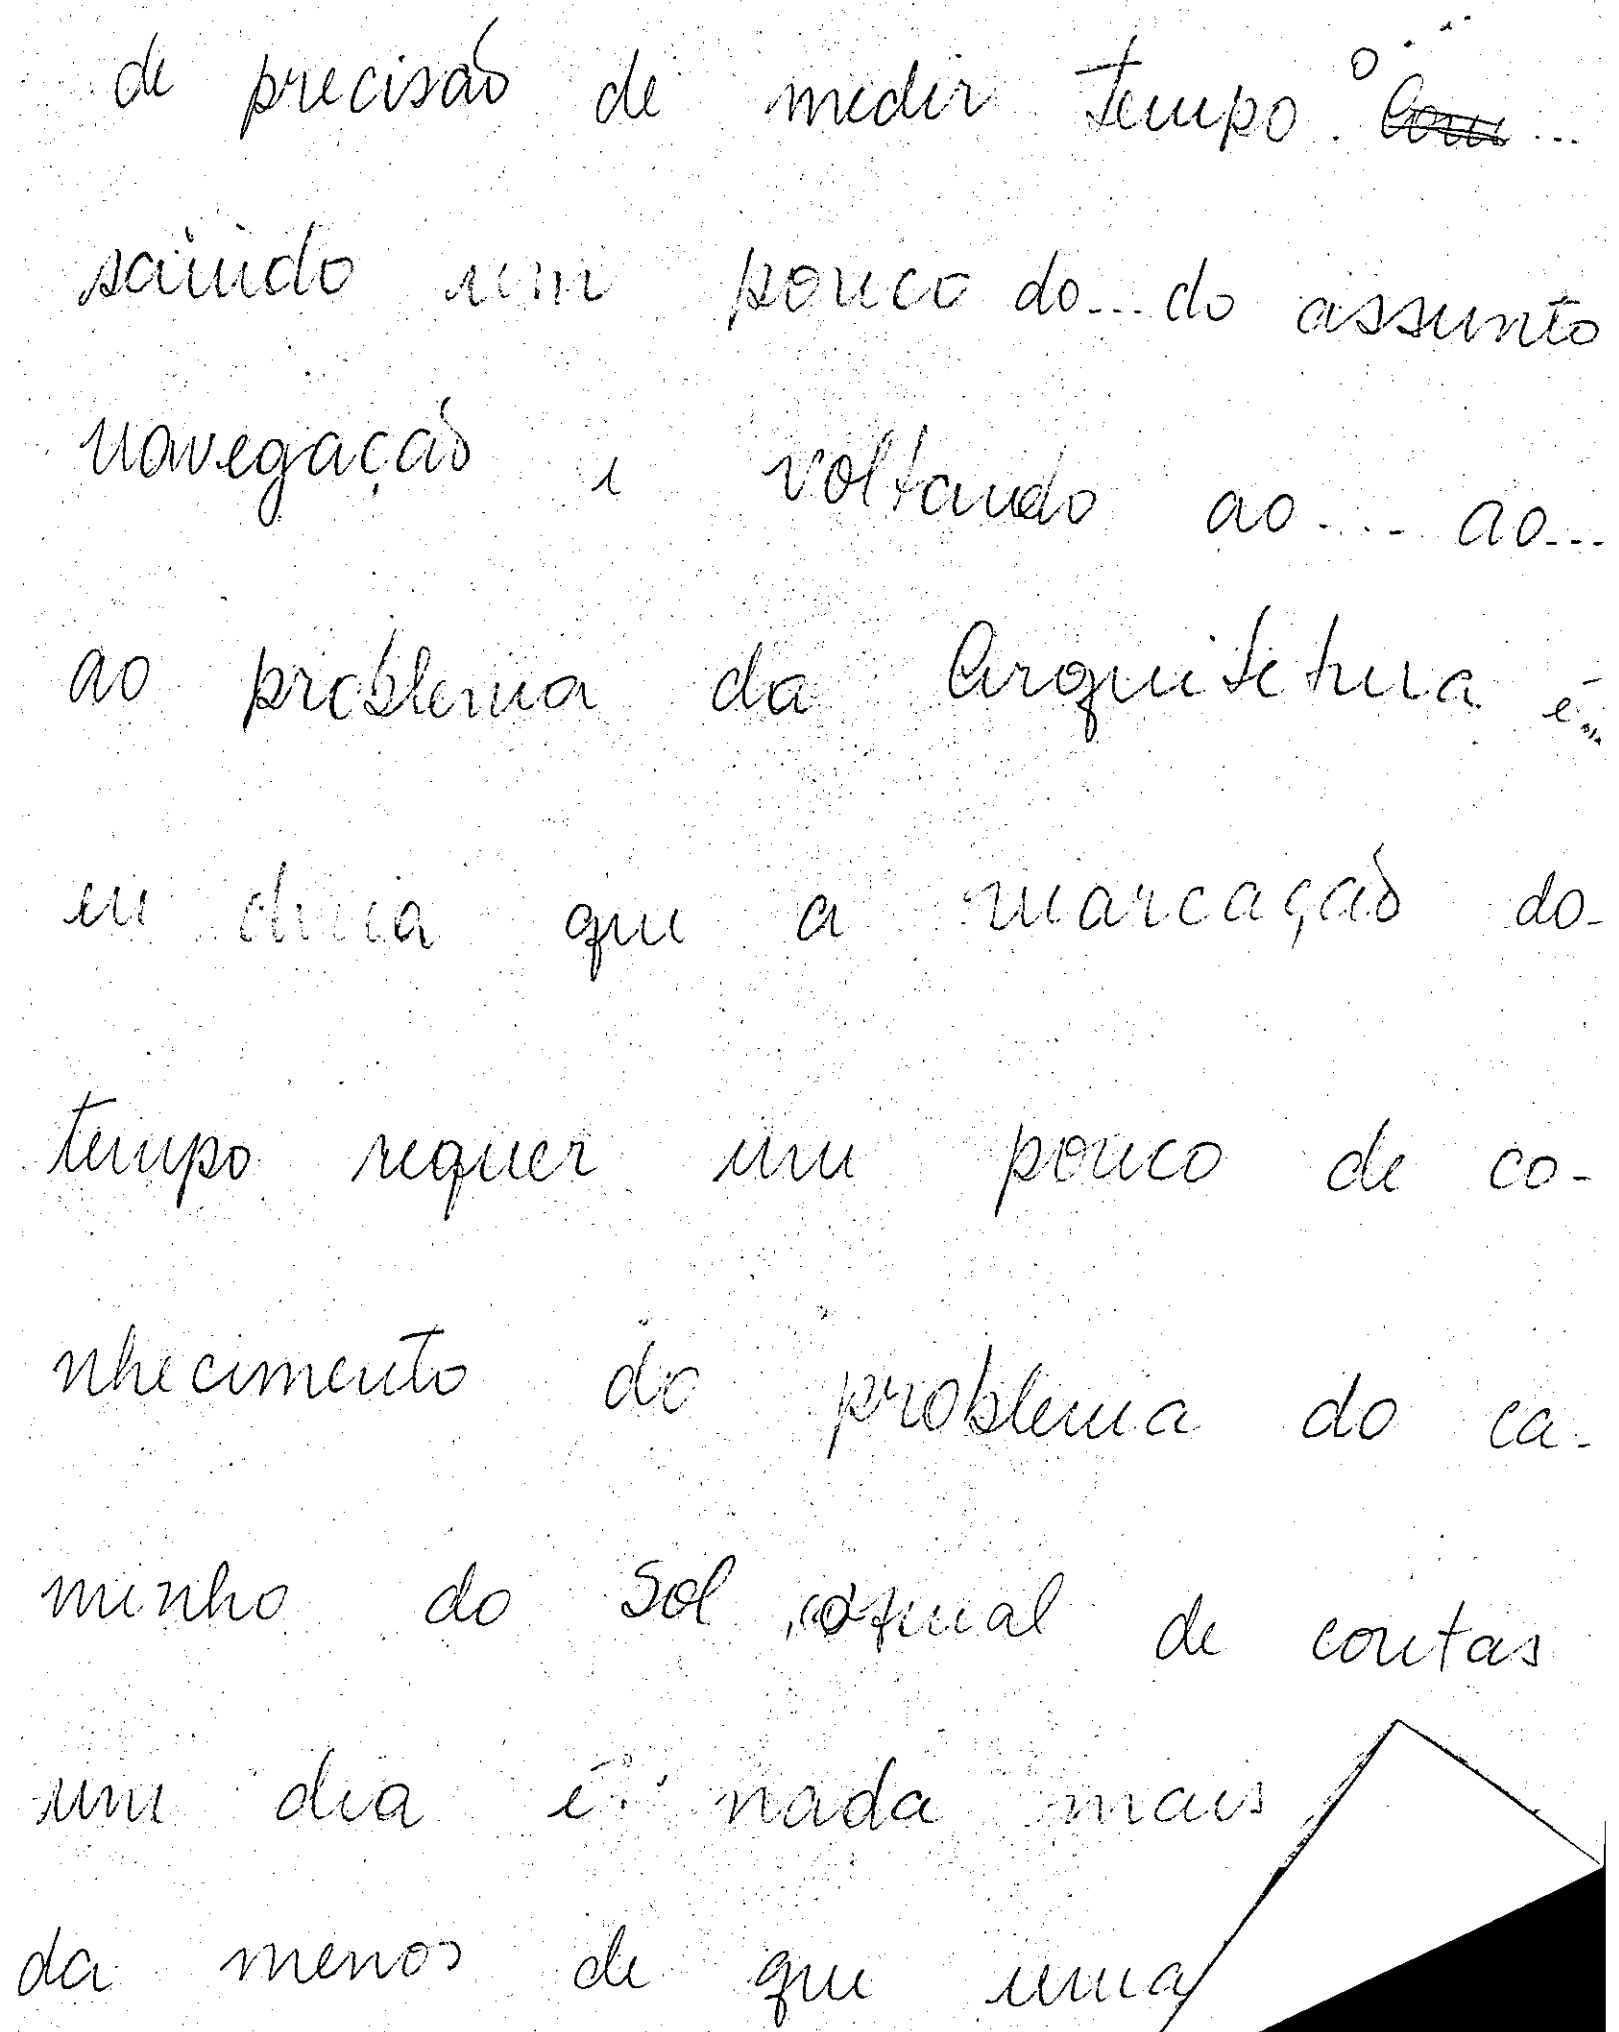 de precisão de medir tempo. O ...
saindo um pouco do... do assunto
navegação e voltando ao.... ao...
ao problema da Arquitetura é...
eu diria que a marcação do
tempo requer um pouco de co-
nhecimento do problema do ca-
minho do Sol, afinal de contas
um dia é nada mais
da menos de que uma